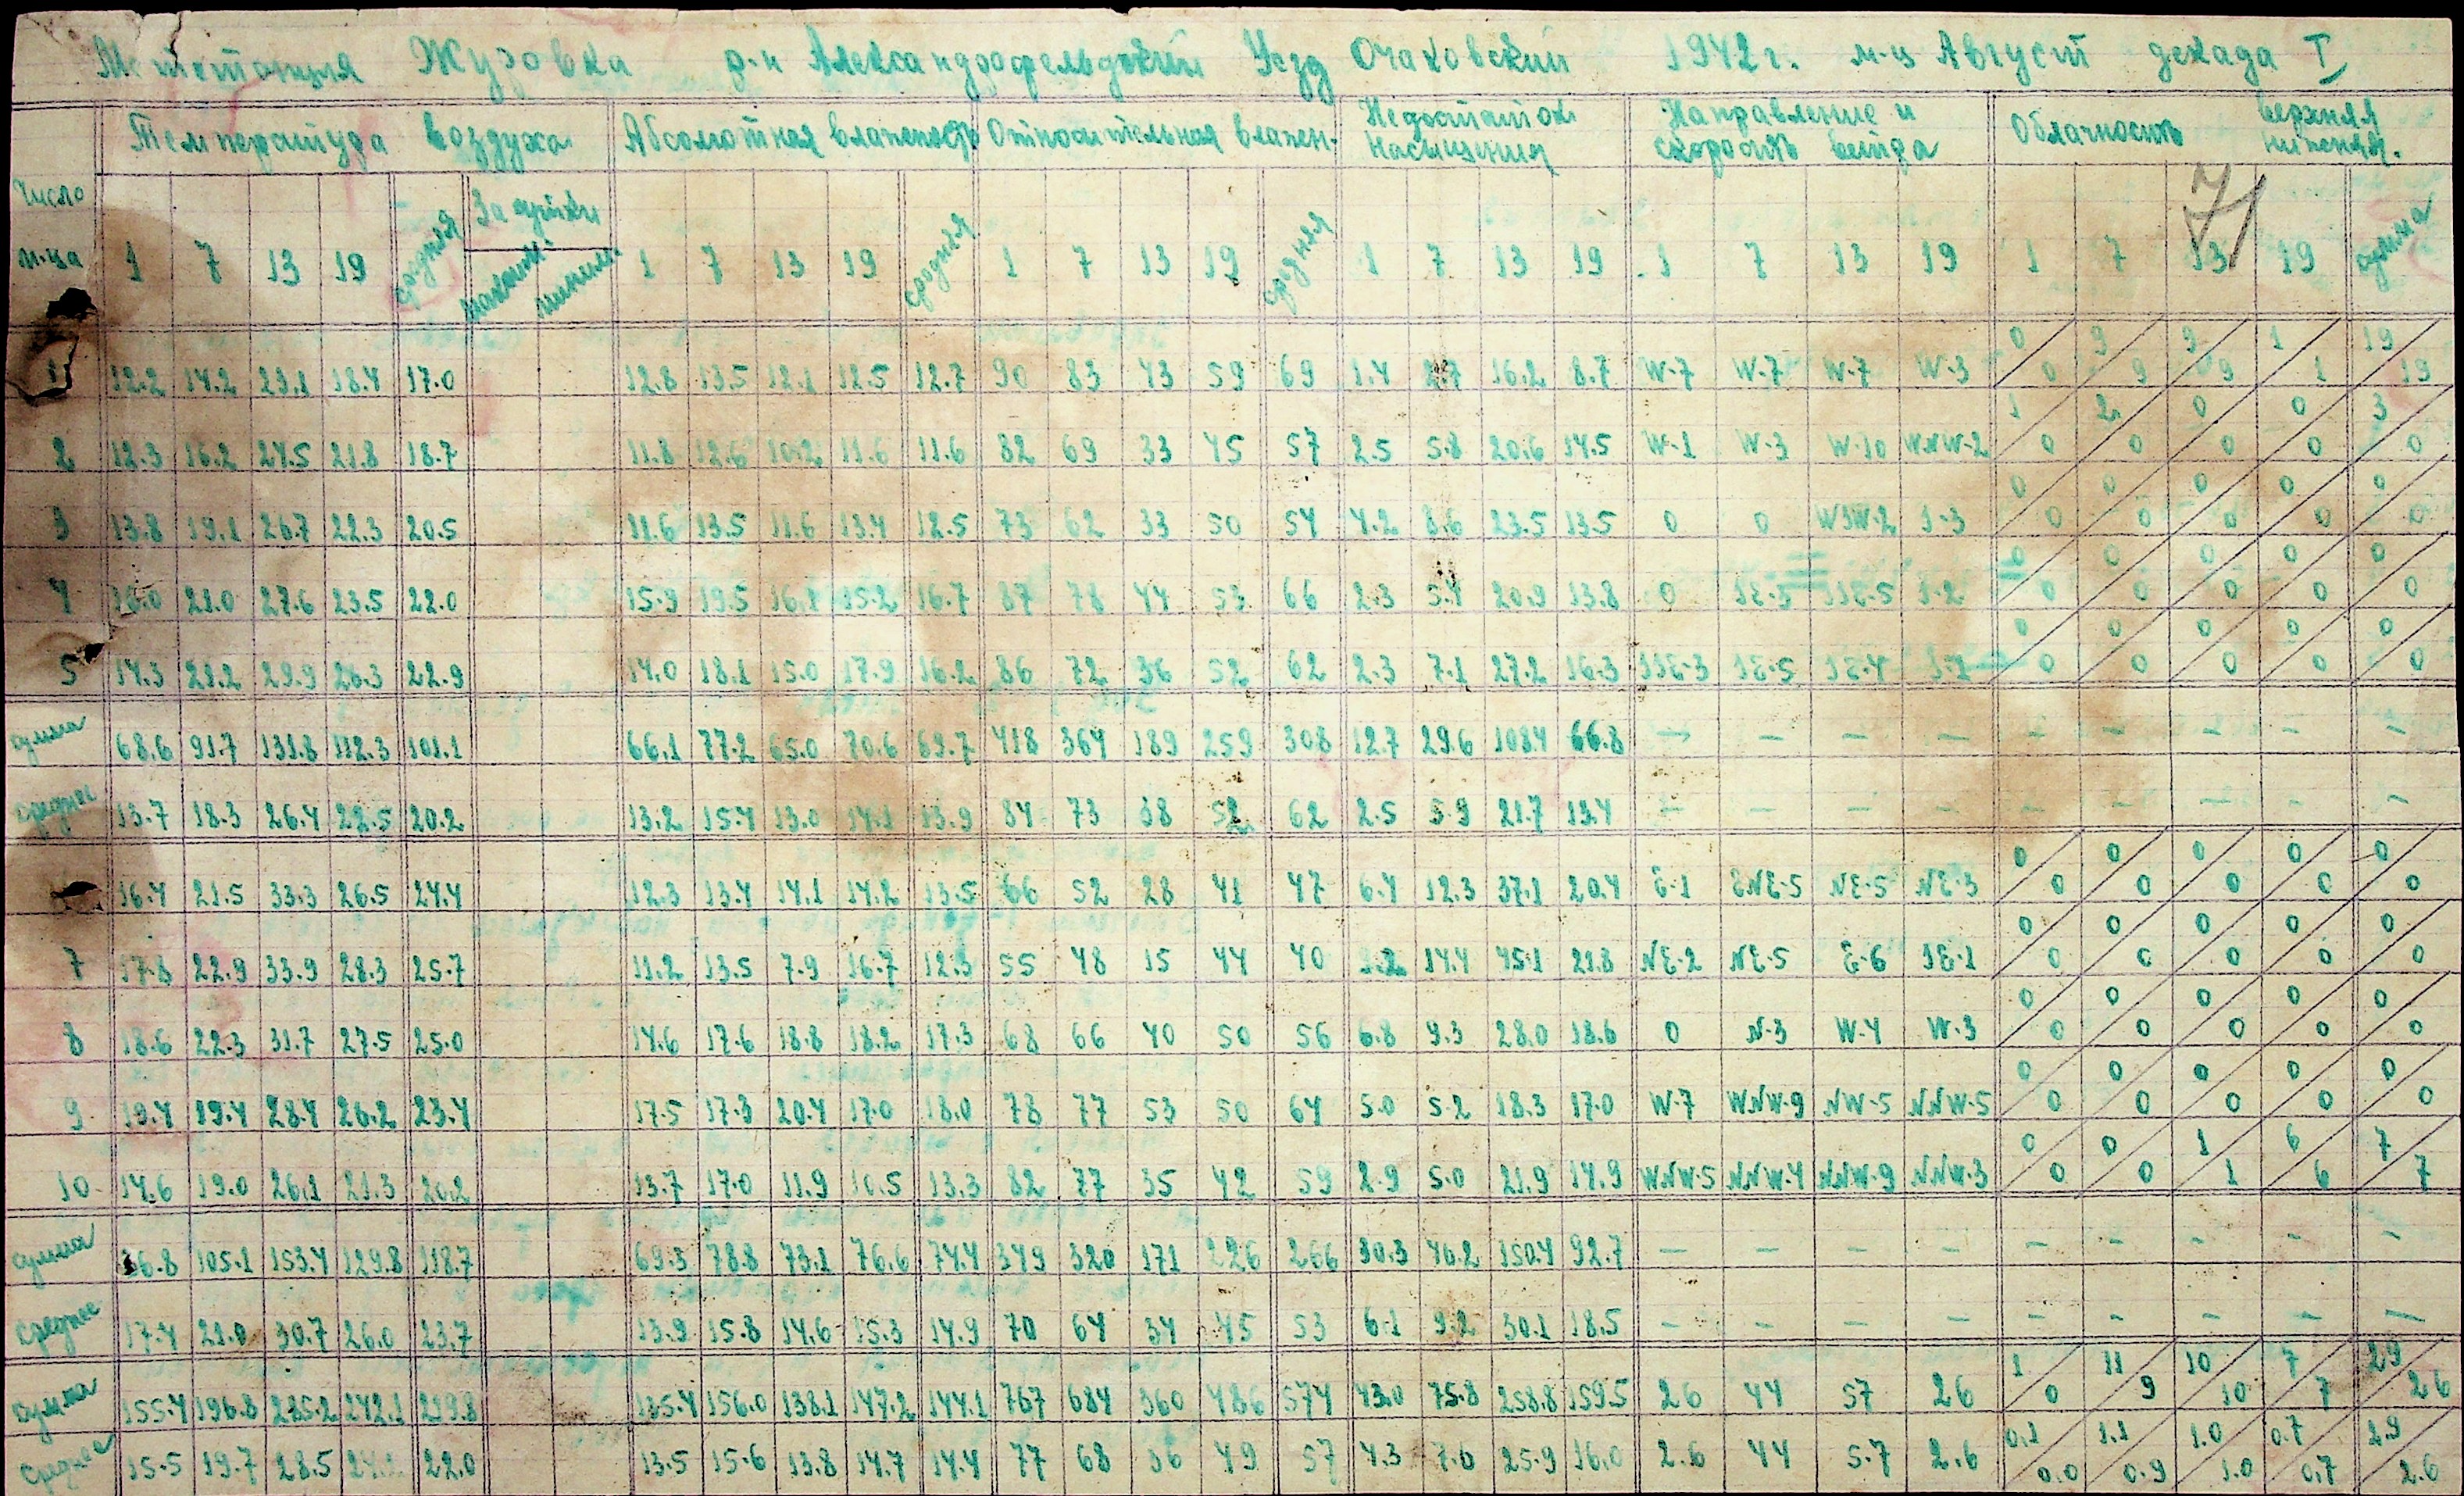 Метстанция Жузовка р-н Александрофельдский Уезд Очаковский 1942 г. м-ц Август декада I
Число м-ца Температура воздуха Абсолютная влажность Относительная влажен. Недостаток насыщения Направление и скорость ветра Облачность верхняя нижняя.
71
За сутки
1 7 13 19 средняя максим. миним. 1 7 13 19 средняя 1 7 13 19 средняя 1 7 13 19 1 7 13 19 1 7 13 19 сумма
0 9 9 1 19
1 12.2 14.2 23.1 18.4 17.0 12.8 13.5 12.1 12.5 12.7 90 83 43 59 69 1.4 2.7 16.2 8.7 W-7 W-7 W-7 W-3 0 9 9 1 19
1 2 0 0 3
2 12.3 16.2 24.5 21.8 18.7 11.8 12.6 10.2 11.6 11.6 82 69 33 45 57 2.5 5.8 20.6 14.5 W-1 W-3 W-10 WNW-2 0 0 0 0 0
0 0 0 0 0
3 13.8 19.1 26.7 22.3 20.5 11.6 13.5 11.6 13.4 12.5 73 62 33 50 54 4.2 8.6 23.5 13.5 0 0 WSW-2 S-3 0 0 0 0 0
0 0 0 0 0
4 16.0 21.0 27.6 23.5 22.0 15.9 19.5 16.1 15.2 16.7 87 78 44 53 66 2.3 5.4 20.9 13.8 0 SE-5 SSE-5 S-2 0 0 0 0 0
0 0 0 0 0
5 14.3 21.2 29.9 26.3 22.9 14.0 18.1 15.0 17.9 16.2 86 72 36 52 62 2.3 7.1 27.2 16.3 SSE-3 SE-5 SE-4 S-1 0 0 0 0 0
сумма 68.6 91.7 131.8 112.3 101.1 66.1 77.2 65.0 70.6 69.7 418 364 189 259 308 12.7 29.6 108.4 66.8 — — — — — — — — —
среднее 13.7 18.3 26.4 22.5 20.2 13.2 15.4 13.0 14.1 13.9 84 73 38 52 62 2.5 5.9 21.7 13.4 — — — — — — — — —
0 0 0 0 0
16.4 21.5 33.3 26.5 24.4 12.3 13.4 14.1 14.2 13.5 66 52 28 41 47 6.4 12.3 37.1 20.4 E-1 ENE-5 NE-5 NE-3 0 0 0 0 0
0 0 0 0 0
7 17.8 22.9 33.9 28.3 25.7 11.2 13.5 7.9 16.7 12.3 55 48 15 44 40 9.2 14.4 45.1 21.8 NE-2 NE-5 E-6 SE-1 0 0 0 0 0
0 0 0 0 0
8 18.6 22.3 31.7 27.5 25.0 14.6 17.6 18.8 18.2 17.3 68 66 40 50 56 6.8 9.3 28.0 18.6 0 N-3 W-4 W-3 0 0 0 0 0
0 0 0 0 0
9 19.4 19.4 28.4 26.2 23.4 17.5 17.3 20.4 17.0 18.0 78 77 53 50 64 5.0 5.2 18.3 17.0 W-7 WNW-9 NW-5 NNW-5 0 0 0 0 0
0 0 1 6 7
10 14.6 19.0 26.1 21.3 20.2 13.7 17.0 11.9 10.5 13.3 82 77 35 42 59 2.9 5.0 21.9 14.9 WNW-5 NNW-4 NNW-9 NNW-3 0 0 1 6 7
сумма 86.8 105.1 153.4 129.8 118.7 69.3 78.8 73.1 76.6 74.4 349 320 171 226 266 30.3 46.2 150.4 92.7 — — — — — — — — —
среднее 17.4 21.0 30.7 26.0 23.7 13.9 15.8 14.6 15.3 14.9 70 64 34 45 53 6.1 9.2 30.1 18.5 — — — — — — — — —
1 11 10 7 29
сумма 155.4 196.8 285.2 242.1 219.8 135.4 156.0 138.1 147.2 144.1 767 684 360 486 574 43.0 75.8 258.8 159.5 26 44 57 26 0 9 10 7 26
0.1 1.1 1.0 0.7 2.9
среднее 15.5 19.7 28.5 24.2 22.0 13.5 15.6 13.8 14.7 14.4 77 68 36 49 57 4.3 7.6 25.9 16.0 2.6 44 5.7 2.6 0.0 0.9 1.0 0.7 2.6